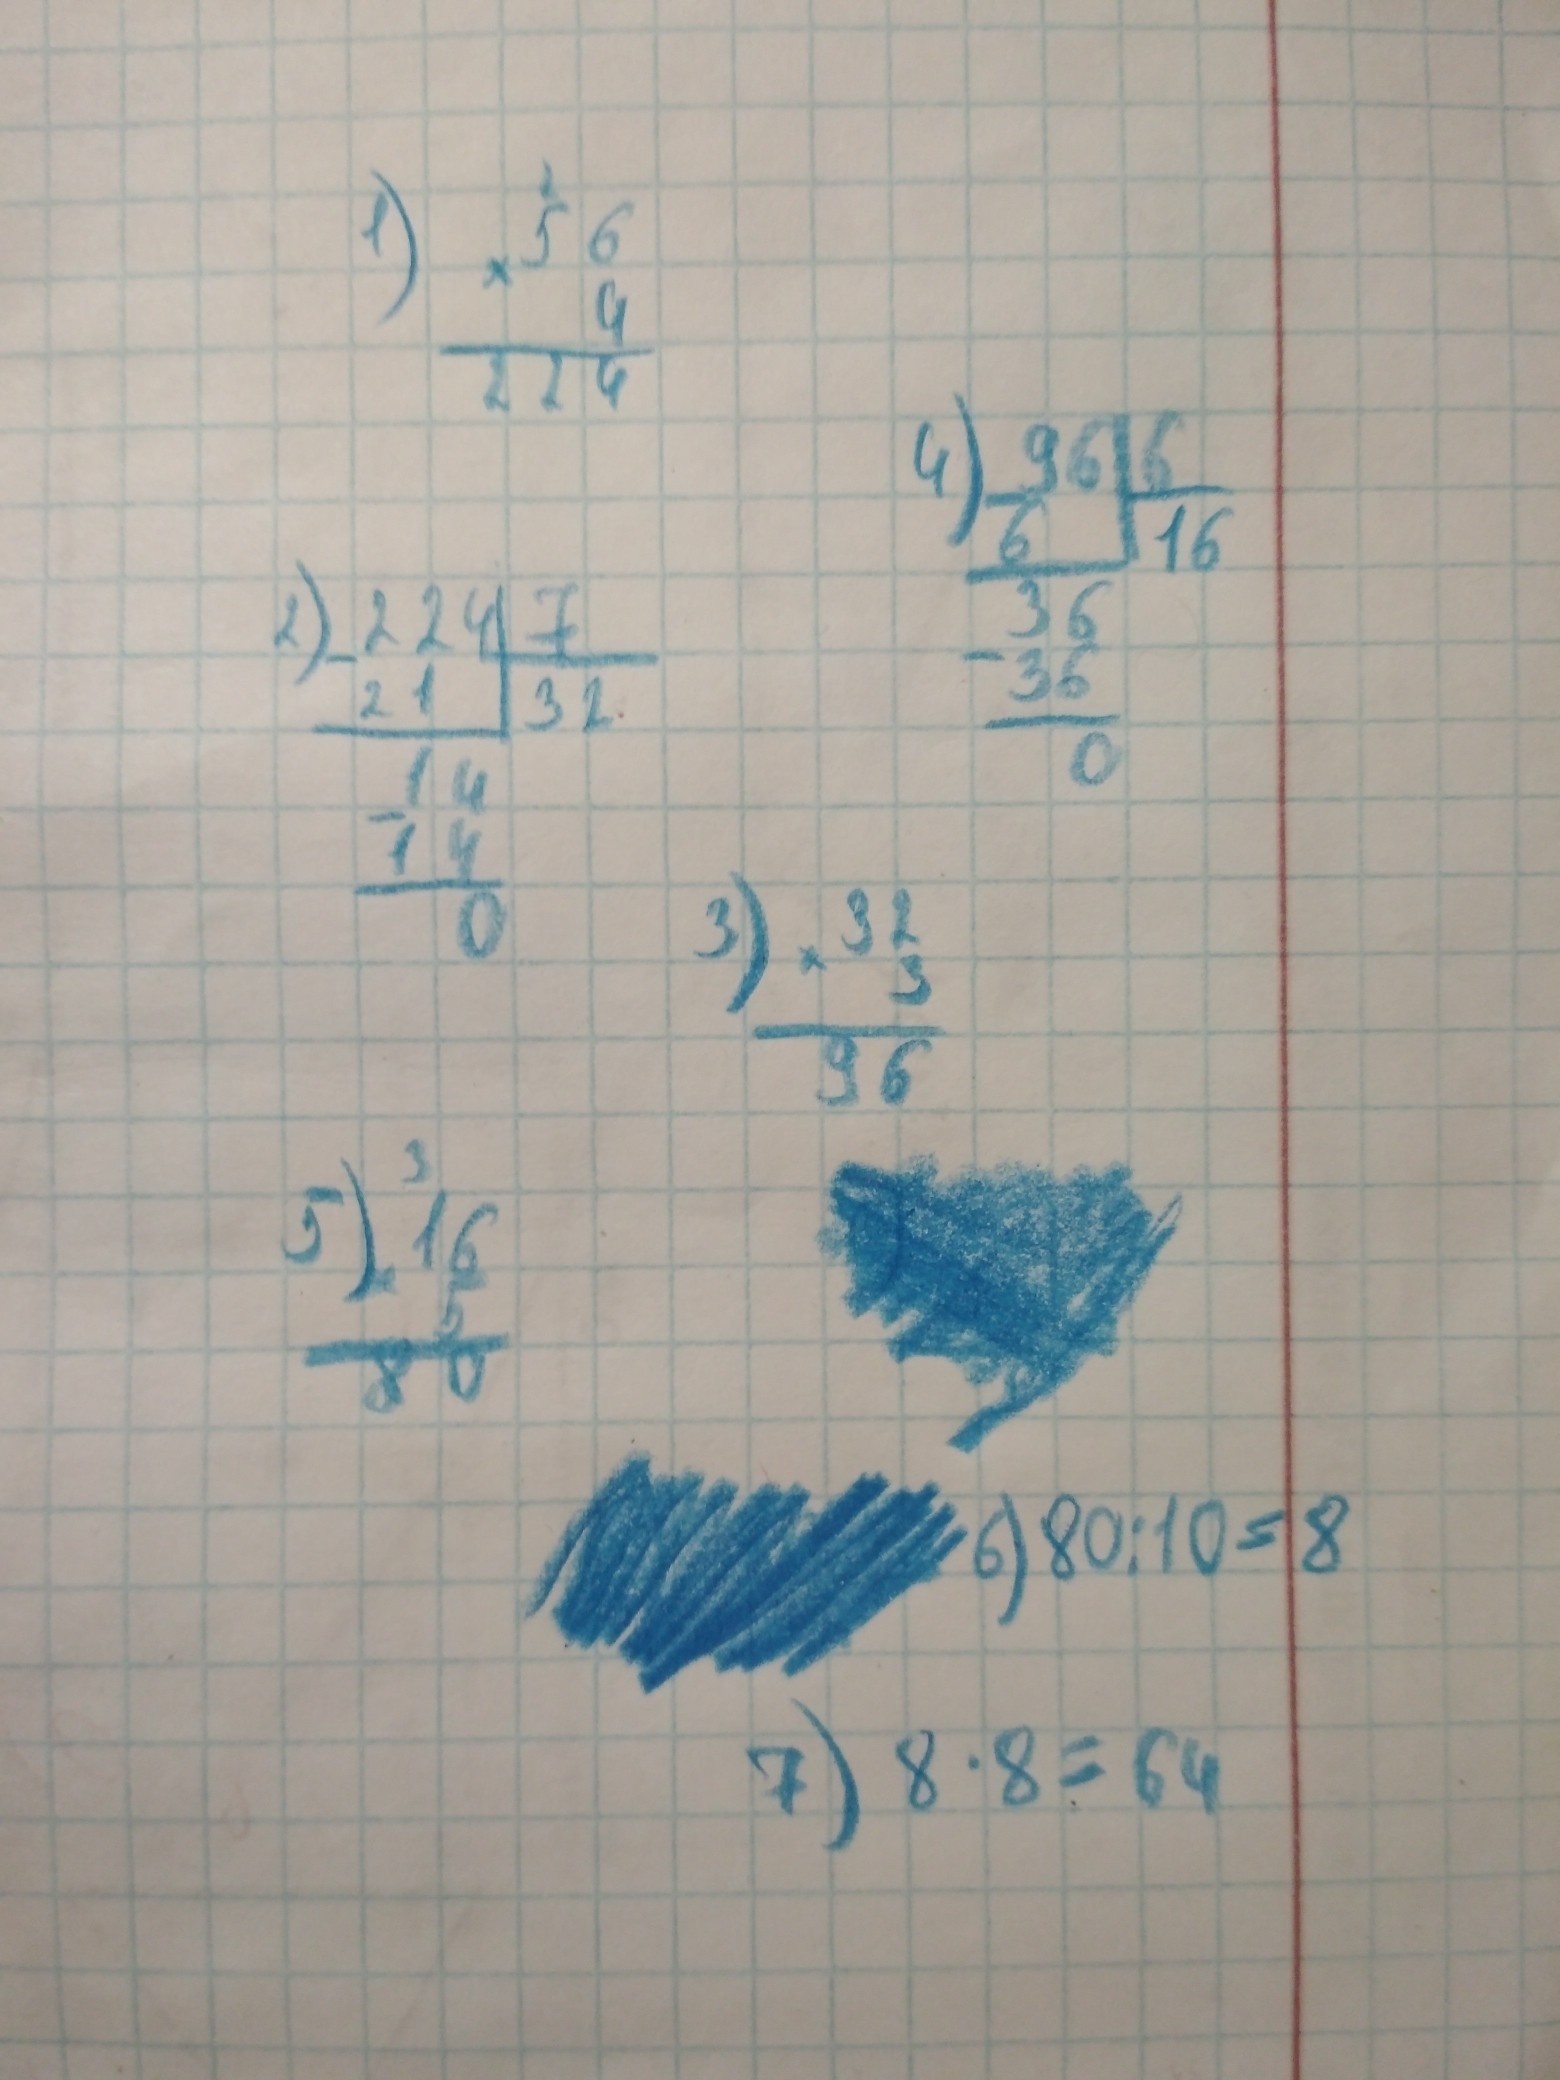 1) 2
× 56
4
224
2) - 224 | 7
21 | 32
14
- 14
0
3) × 32
3
96
4) - 96 | 6
6 | 16
36
- 36
0
5) 3
× 16
5
80
6) 80:10=8
7) 8·8=64